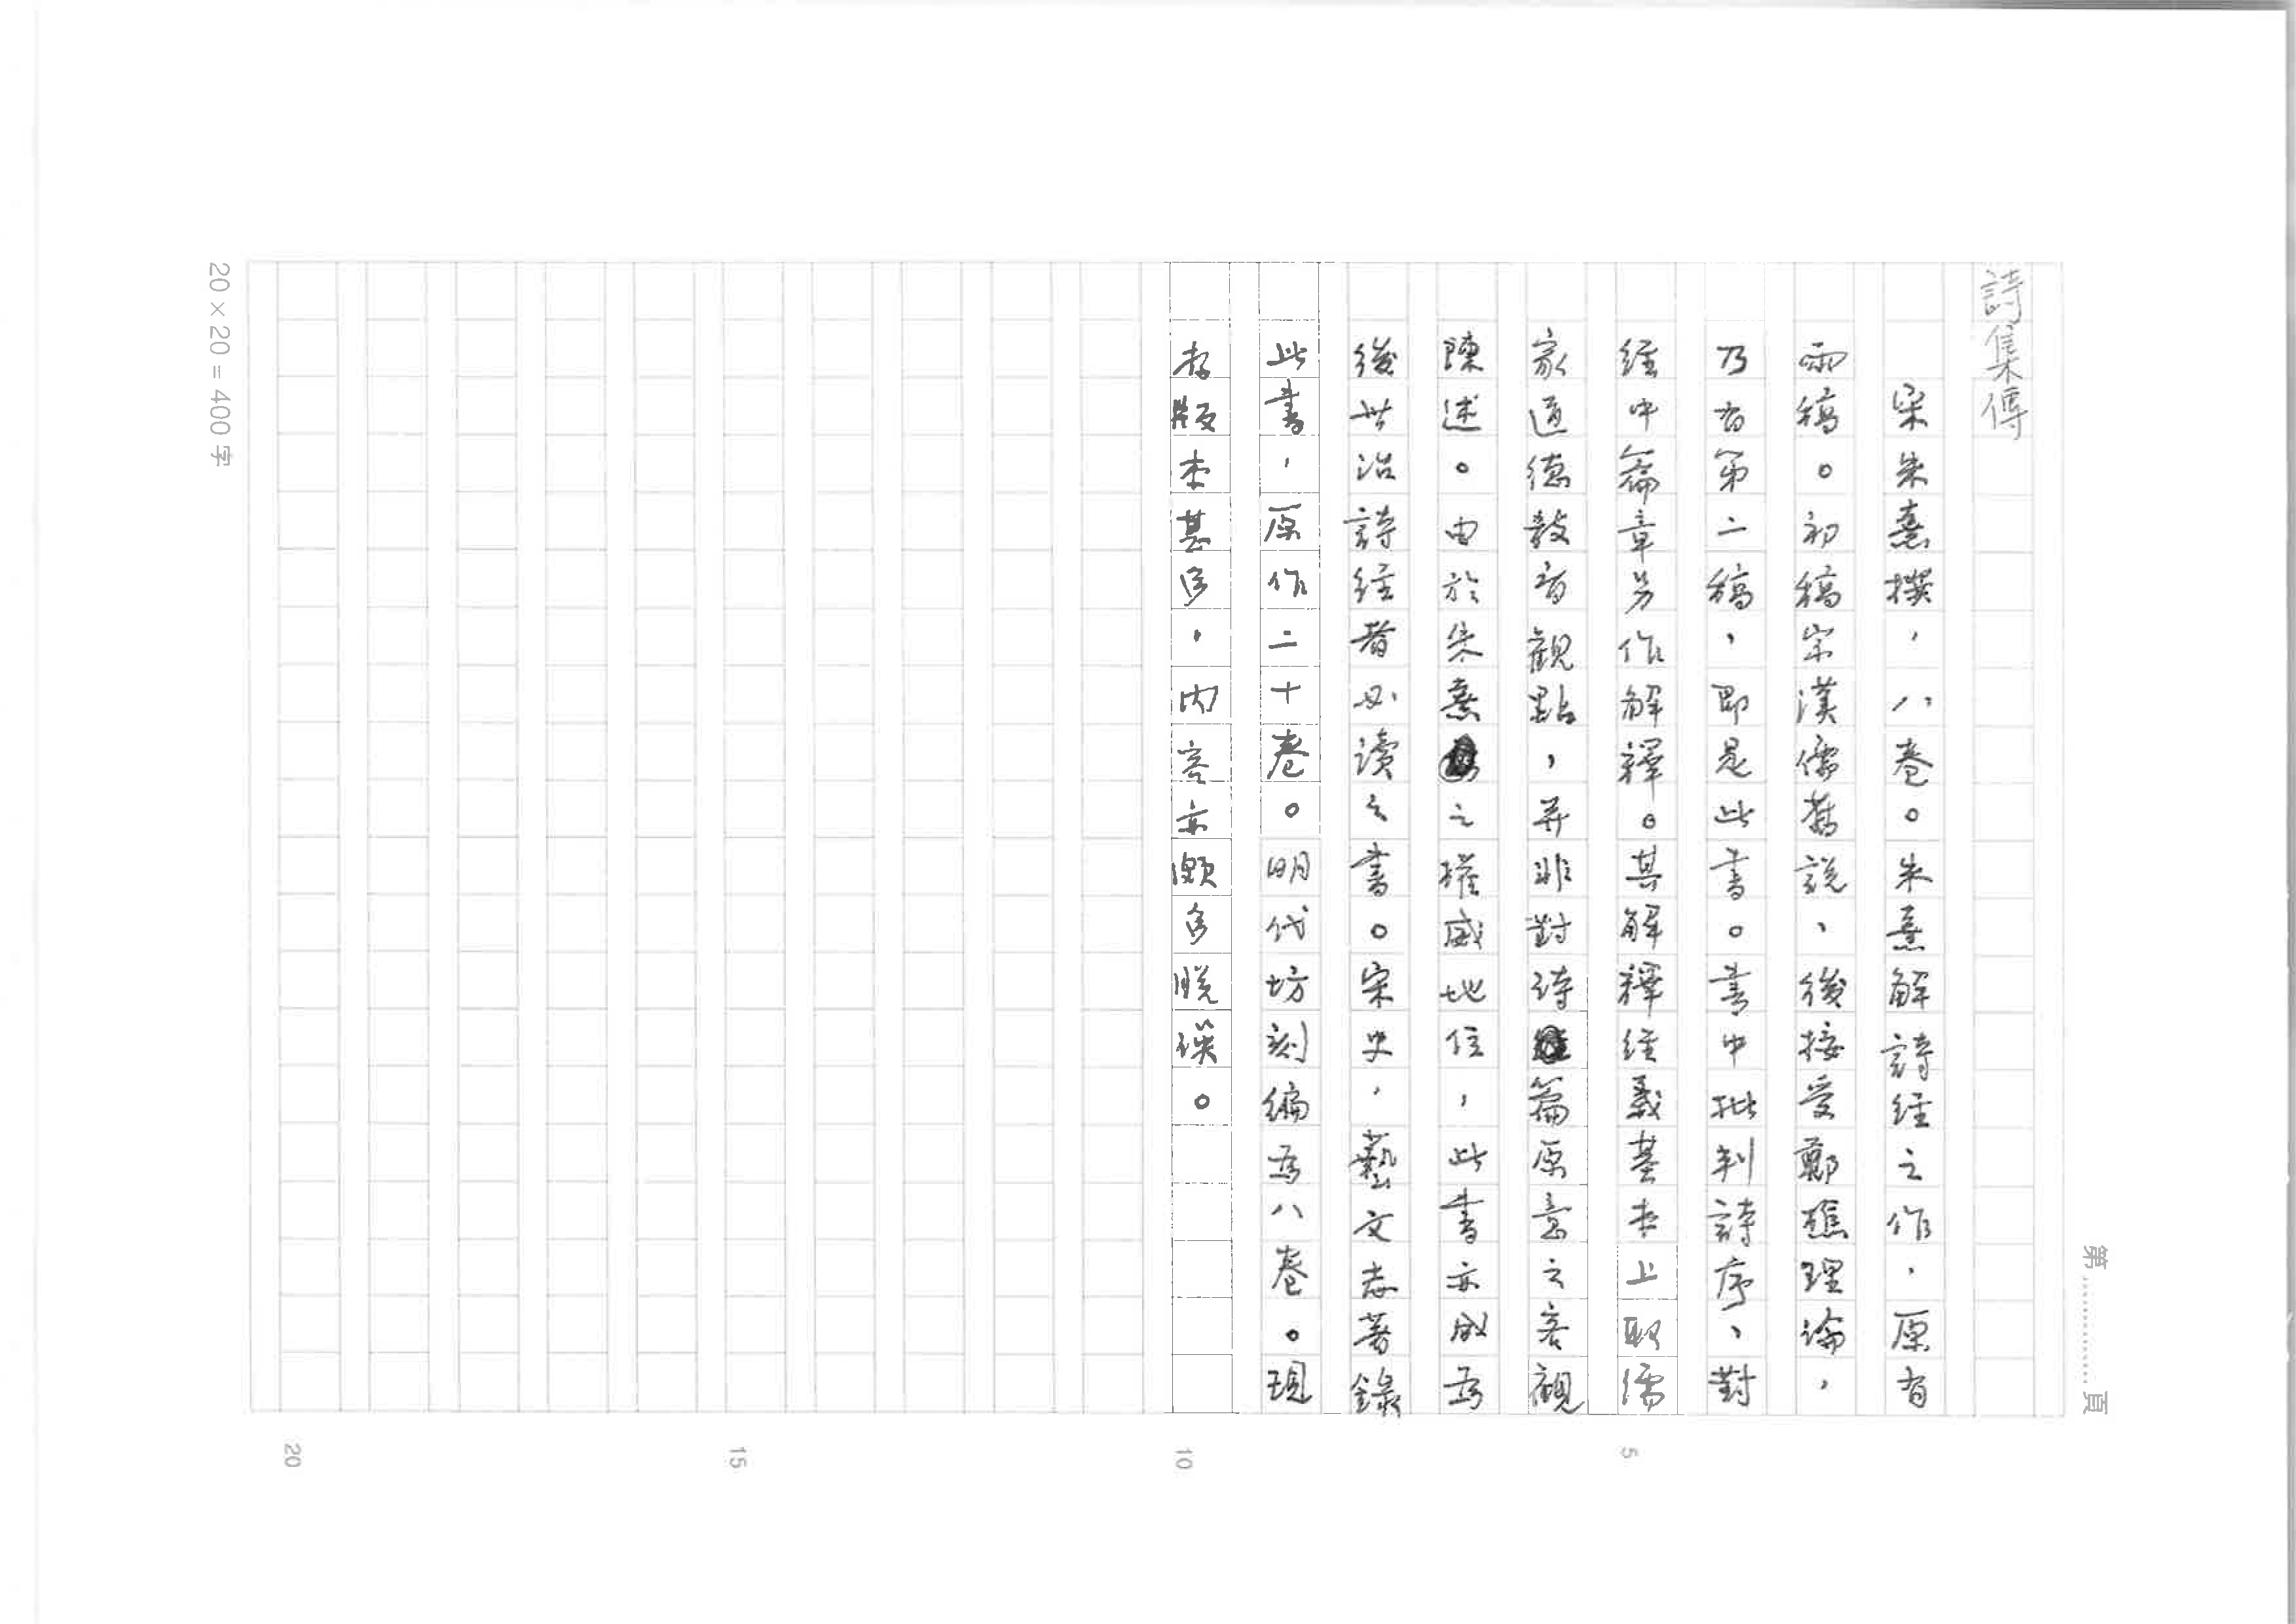 詩集傳
宋朱熹撰,八卷。朱熹解詩經之作,原有
兩稿。初稿宗漢儒舊說,後接受鄭樵理論,
乃有第二稿,即是此書。書中批判詩序,對
經中篇章另作解釋。其解釋經義基本上取儒
家道德教育觀點,并非對詩篇原意之客觀
陳述。由於朱熹之權威地位,此書亦成為
後世治詩經者必讀之書。宋史,藝文志著錄
此書,原作二十卷。明代坊刻編為八卷。現
存版本甚多,內容亦頗多脫誤。
第............頁
5
10
15
20
20×20=400字